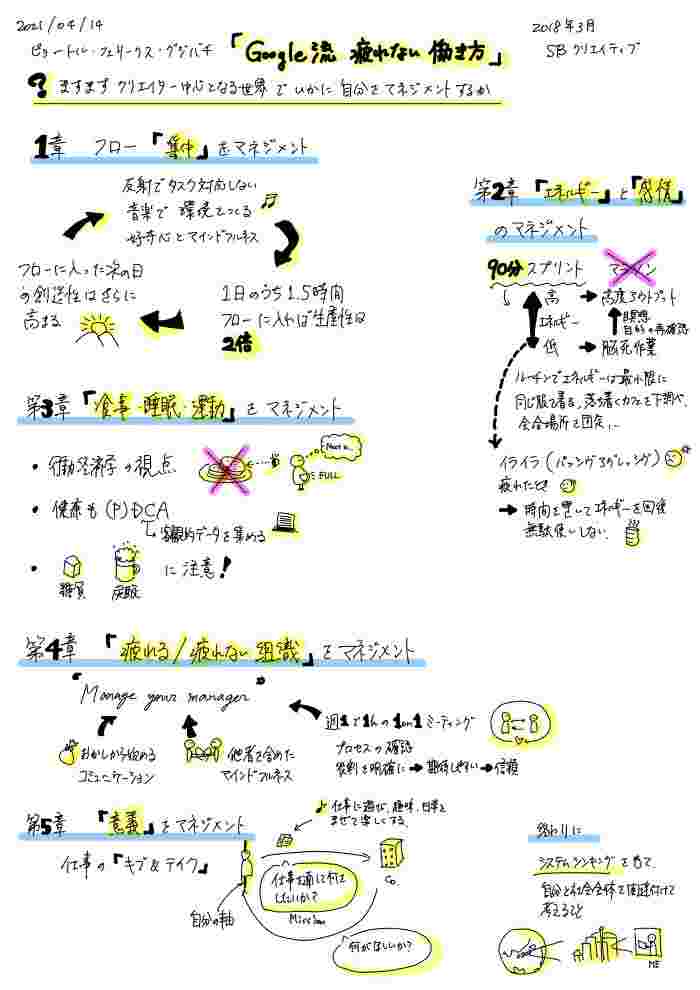 2021/04/14
ピョートル・フェリークス・グジバチ
「Google流 疲れない働き方」
2018年3月
SBクリエイティブ
? ますます クリエイター中心となる世界で いかに 自分をマネジメントするか
1章 フロー「集中」をマネジメント
反射でタスク対応しない
音楽で 環境をつくる
好奇心とマインドフルネス
1日のうち1.5時間
フローに入れば生産性は
2倍
フローに入った次の日
の創造性はさらに
高まる
第2章 「エネルギー」と「感情」
のマネジメント
90分スプリント
マラソン
高 → 高度アウトプット
エネルギー
瞑想
目的の再確認
低 → 脳死作業
ルーチンでエネルギーは最小限に
同じ服を着る、落ち着くカフェを下調べ、
会合場所を固定...
イライラ(パッシブアグレッシブ)
疲れたとき
→ 時間を置いてエネルギーを回復
無駄使いしない
第3章 「食事・睡眠・運動」を マネジメント
・行動経済学の視点
FULL
・健康も (P)DCA
客観的データを集める
・糖質 炭酸 に注意!
第4章 「疲れる/疲れない 組織」を マネジメント
"Manage your manager"
おかしから始める
コミュニケーション
他者を含めた
マインドフルネス
週1で1hの1on1ミーティング
プロセスの確認
役割を明確に → 期待しやすい → 信頼
第5章 「意義」をマネジメント
仕事の『ギブ&テイク』
自分の軸
仕事に遊び、趣味、日常を
まぜて楽しくする
仕事を通して何を
したいか?
Mission
Co.
何がほしいか?
終わりに
システムシンキングを もて、
自分と社会全体を関連付けて
考えること
ME